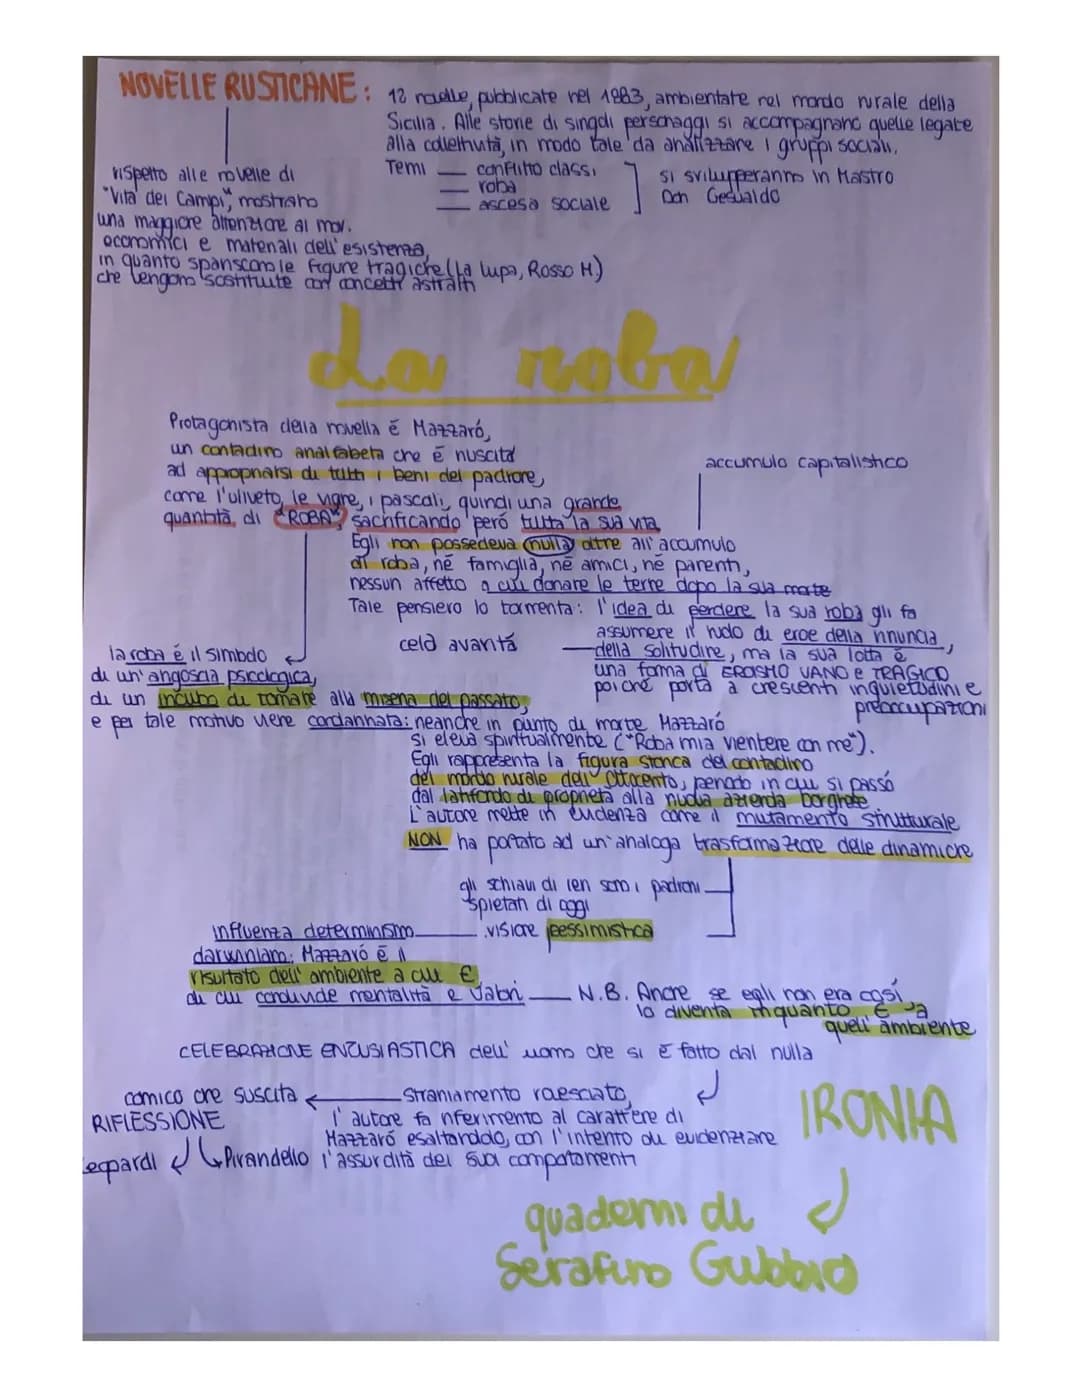 NOVELLE RUSTICANE:
12 novelle, pubblicate nel 1883, ambientate nel mondo rurale della
Sicilia. Alle storie di singoli personaggi si accompagnano quelle legate
alla collettività, in modo tale da analizzare i gruppi sociali.
Temi — conflitto classi
— roba
— ascesa sociale
si svilupperanno in Mastro
Don Gesualdo
rispetto alle novelle di
"Vita dei Campi", mostrano
una maggiore attenzione ai mov.
economici e materiali dell'esistenza,
in quanto spariscono le figure tragiche (La lupa, Rosso M)
che vengono sostituite con concetti astratti
La roba
Protagonista della novella é Mazzaró,
un contadino analfabeta che é riuscito
ad appropriarsi di tutti i beni del padrone,
come l'uliveto, le vigne, i pascoli, quindi una grande
quantità di "ROBA", sacrificando peró tutta la sua vita
accumulo capitalistico
Egli non possedeva nulla oltre all'accumulo
di roba, né famiglia, né amici, né parenti,
nessun affetto a cui donare le terre dopo la sua morte
Tale pensiero lo tormenta: l'idea di perdere la sua roba gli fa
assumere il ruolo di eroe della rinuncia,
celo avarità — della solitudine, ma la sua lotta é
una forma di EROISMO VANO e TRAGICO
poiché porta a crescenti inquietudini e
preoccupazioni
la roba é il simbolo
di un'angoscia psicologica,
di un incubo di tornare alla miseria del passato,
e per tale motivo viene condannata: neanche in punto di morte Mazzaró
si eleva spiritualmente ("Roba mia vientene con me").
Egli rappresenta la figura storica del contadino
del mondo rurale dell'Ottocento, periodo in cui si passó
dal latifondo di proprietà alla nuova azienda borghese
L'autore mette in evidenza come il mutamento strutturale
NON ha portato ad un'analoga trasformazione delle dinamiche
gli schiavi di ieri sono i padroni
spietati di oggi
influenza determinismo — visione pessimistica
darwiniano: Mazzaró é il
risultato dell'ambiente a cui é
di cui condivide mentalità e valori — N.B. Anche se egli non era così,
lo diventa inquanto é a
quell'ambiente
CELEBRAZIONE ENTUSIASTICA dell'uomo che si é fatto dal nulla
comico che suscita ← straniamento rovesciato,
RIFLESSIONE
l'autore fa riferimento al carattere di
Mazzaró esaltandolo, con l'intento di evidenziare
Leopardi Pirandello l'assurdità dei suoi comportamenti
IRONIA
quaderni di
Serafino Gubbio